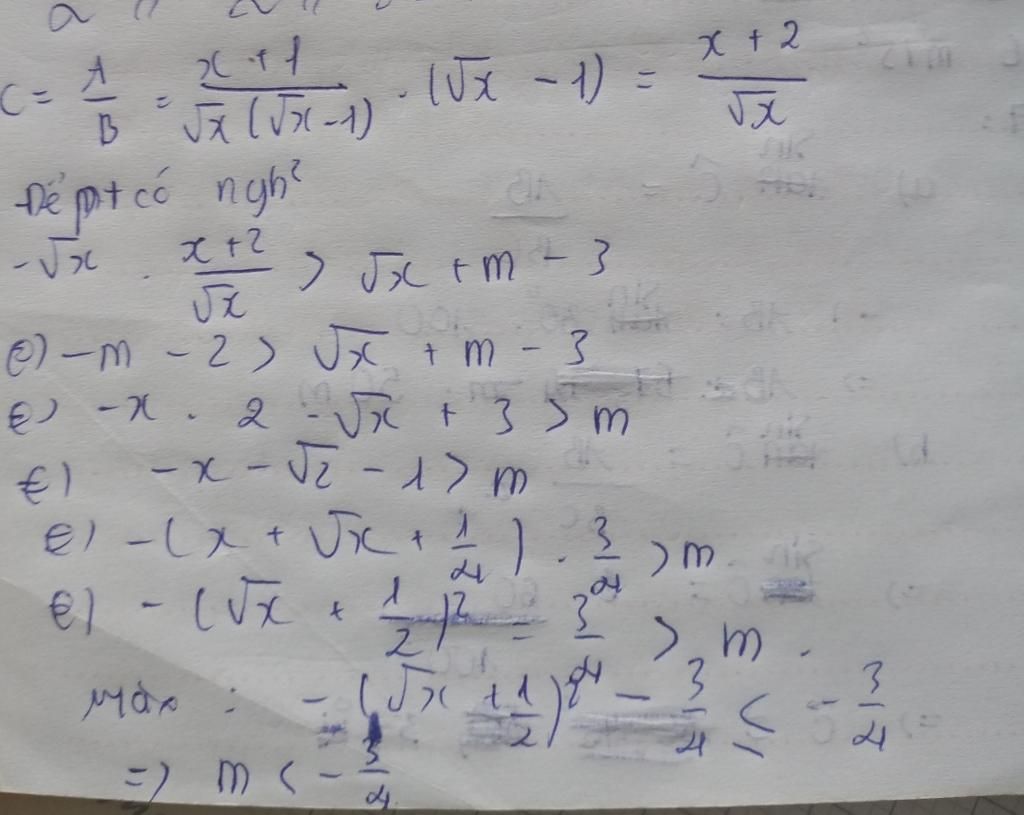 C = A/B = x+1/√x(√x-1) . (√x - 1) = x+2/√x
Để pt có ngh²
-√x . x+2/√x > √x + m - 3
€) -m - 2 > √x + m - 3
€) -x . 2 -√x + 3 > m
€) -x - √2 - 1 > m
€) -(x + √x + 1/4) . 3/4 > m
€) -(√x + 1/2)² = 3/4 > m.
Max : -(√x + 1/2)² - 3/4 ≤ - 3/4
=) m < - 3/4